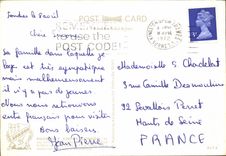 Londres le 8 avril
POST CARD
REMEMBER
USE THE
POST CODE
Chers
La famille dans laquelle je
loge est très sympathique
mais malheureusement
il n'y a pas de jeunes
Nous nous retrouvons
entre français pour visiter
Bons baisers
Jean Pierre
Mademoiselle S Chadelat
3 rue Camille Desmoulins
92 Levallois Perret
Hauts de Seine
FRANCE